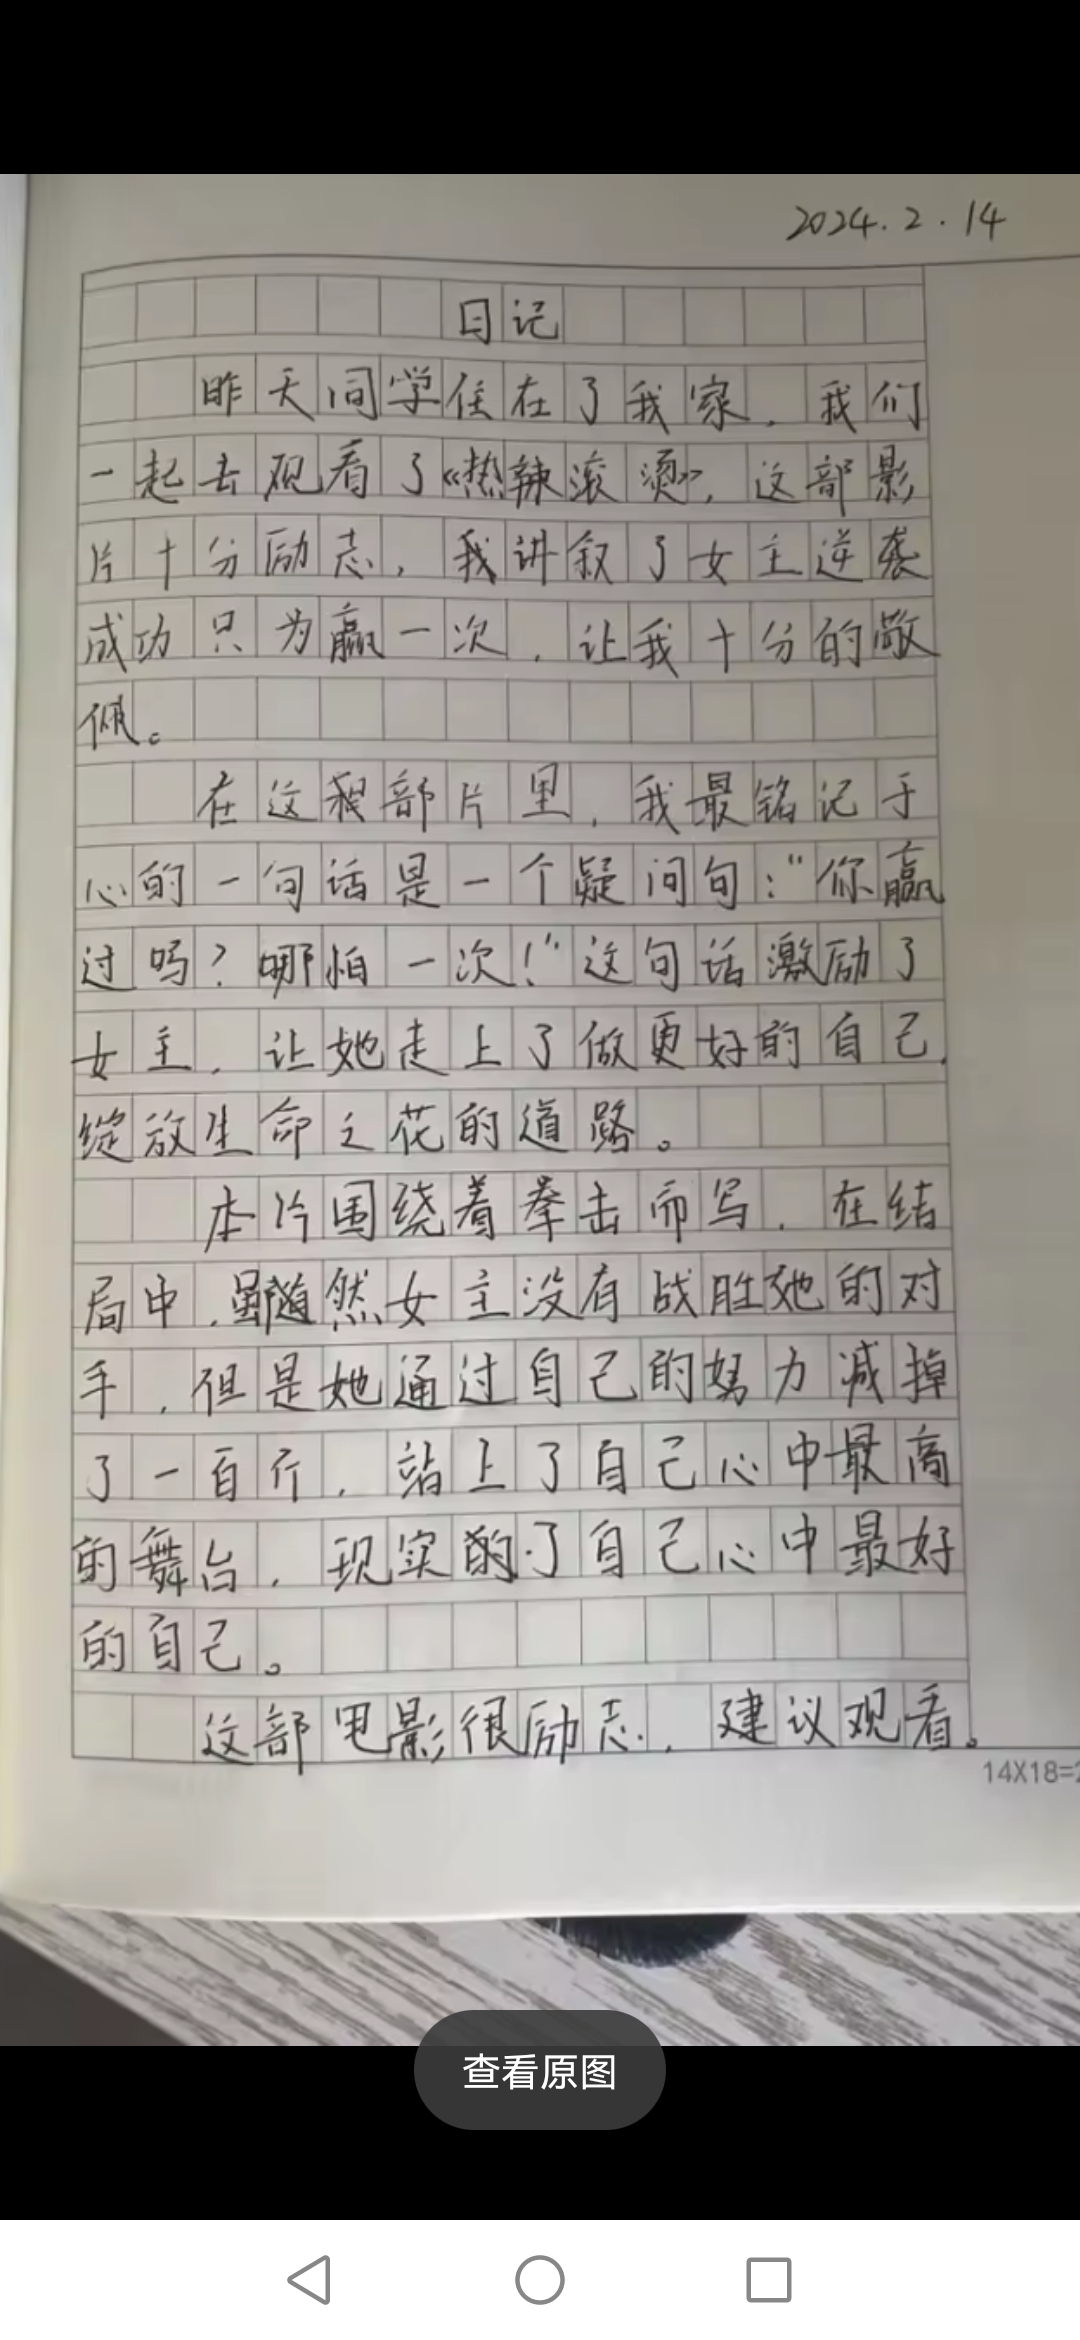 2024.2.14
日记
昨天同学住在了我家，我们
一起去观看了《热辣滚烫》，这部影
片十分励志，我讲叙了女主逆袭
成功只为赢一次，让我十分的敬
佩。
在这部片里，我最铭记于
心的一句话是一个疑问句："你赢
过吗？哪怕一次！"这句话激励了
女主，让她走上了做更好的自己，
绽放生命之花的道路。
本片围绕着拳击而写，在结
局中，虽然女主没有战胜她的对
手，但是她通过自己的努力减掉
了一百斤，站上了自己心中最高
的舞台，现实了自己心中最好
的自己。
这部电影很励志，建议观看。
14X18=2
查看原图